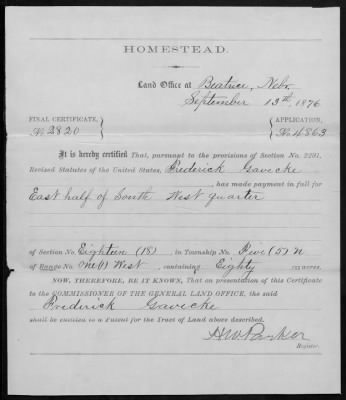 HOMESTEAD.
Land Office at Beatrice, Nebr
September 13th, 1876
FINAL CERTIFICATE,
No 2820
APPLICATION,
No 4863
It is hereby certified That, pursuant to the provisions of Section No. 2291,
Revised Statutes of the United States, Frederick Gavecke
has made payment in full for
East half of South West quarter
of Section No. Eighteen (18) in Township No. Five (5) N
of Range No. One (1) West, containing Eighty acres.
NOW, THEREFORE, BE IT KNOWN, That on presentation of this Certificate
to the COMMISSIONER OF THE GENERAL LAND OFFICE, the said
Frederick Gavecke
shall be entitled to a Patent for the Tract of Land above described.
HW Parker
Register.